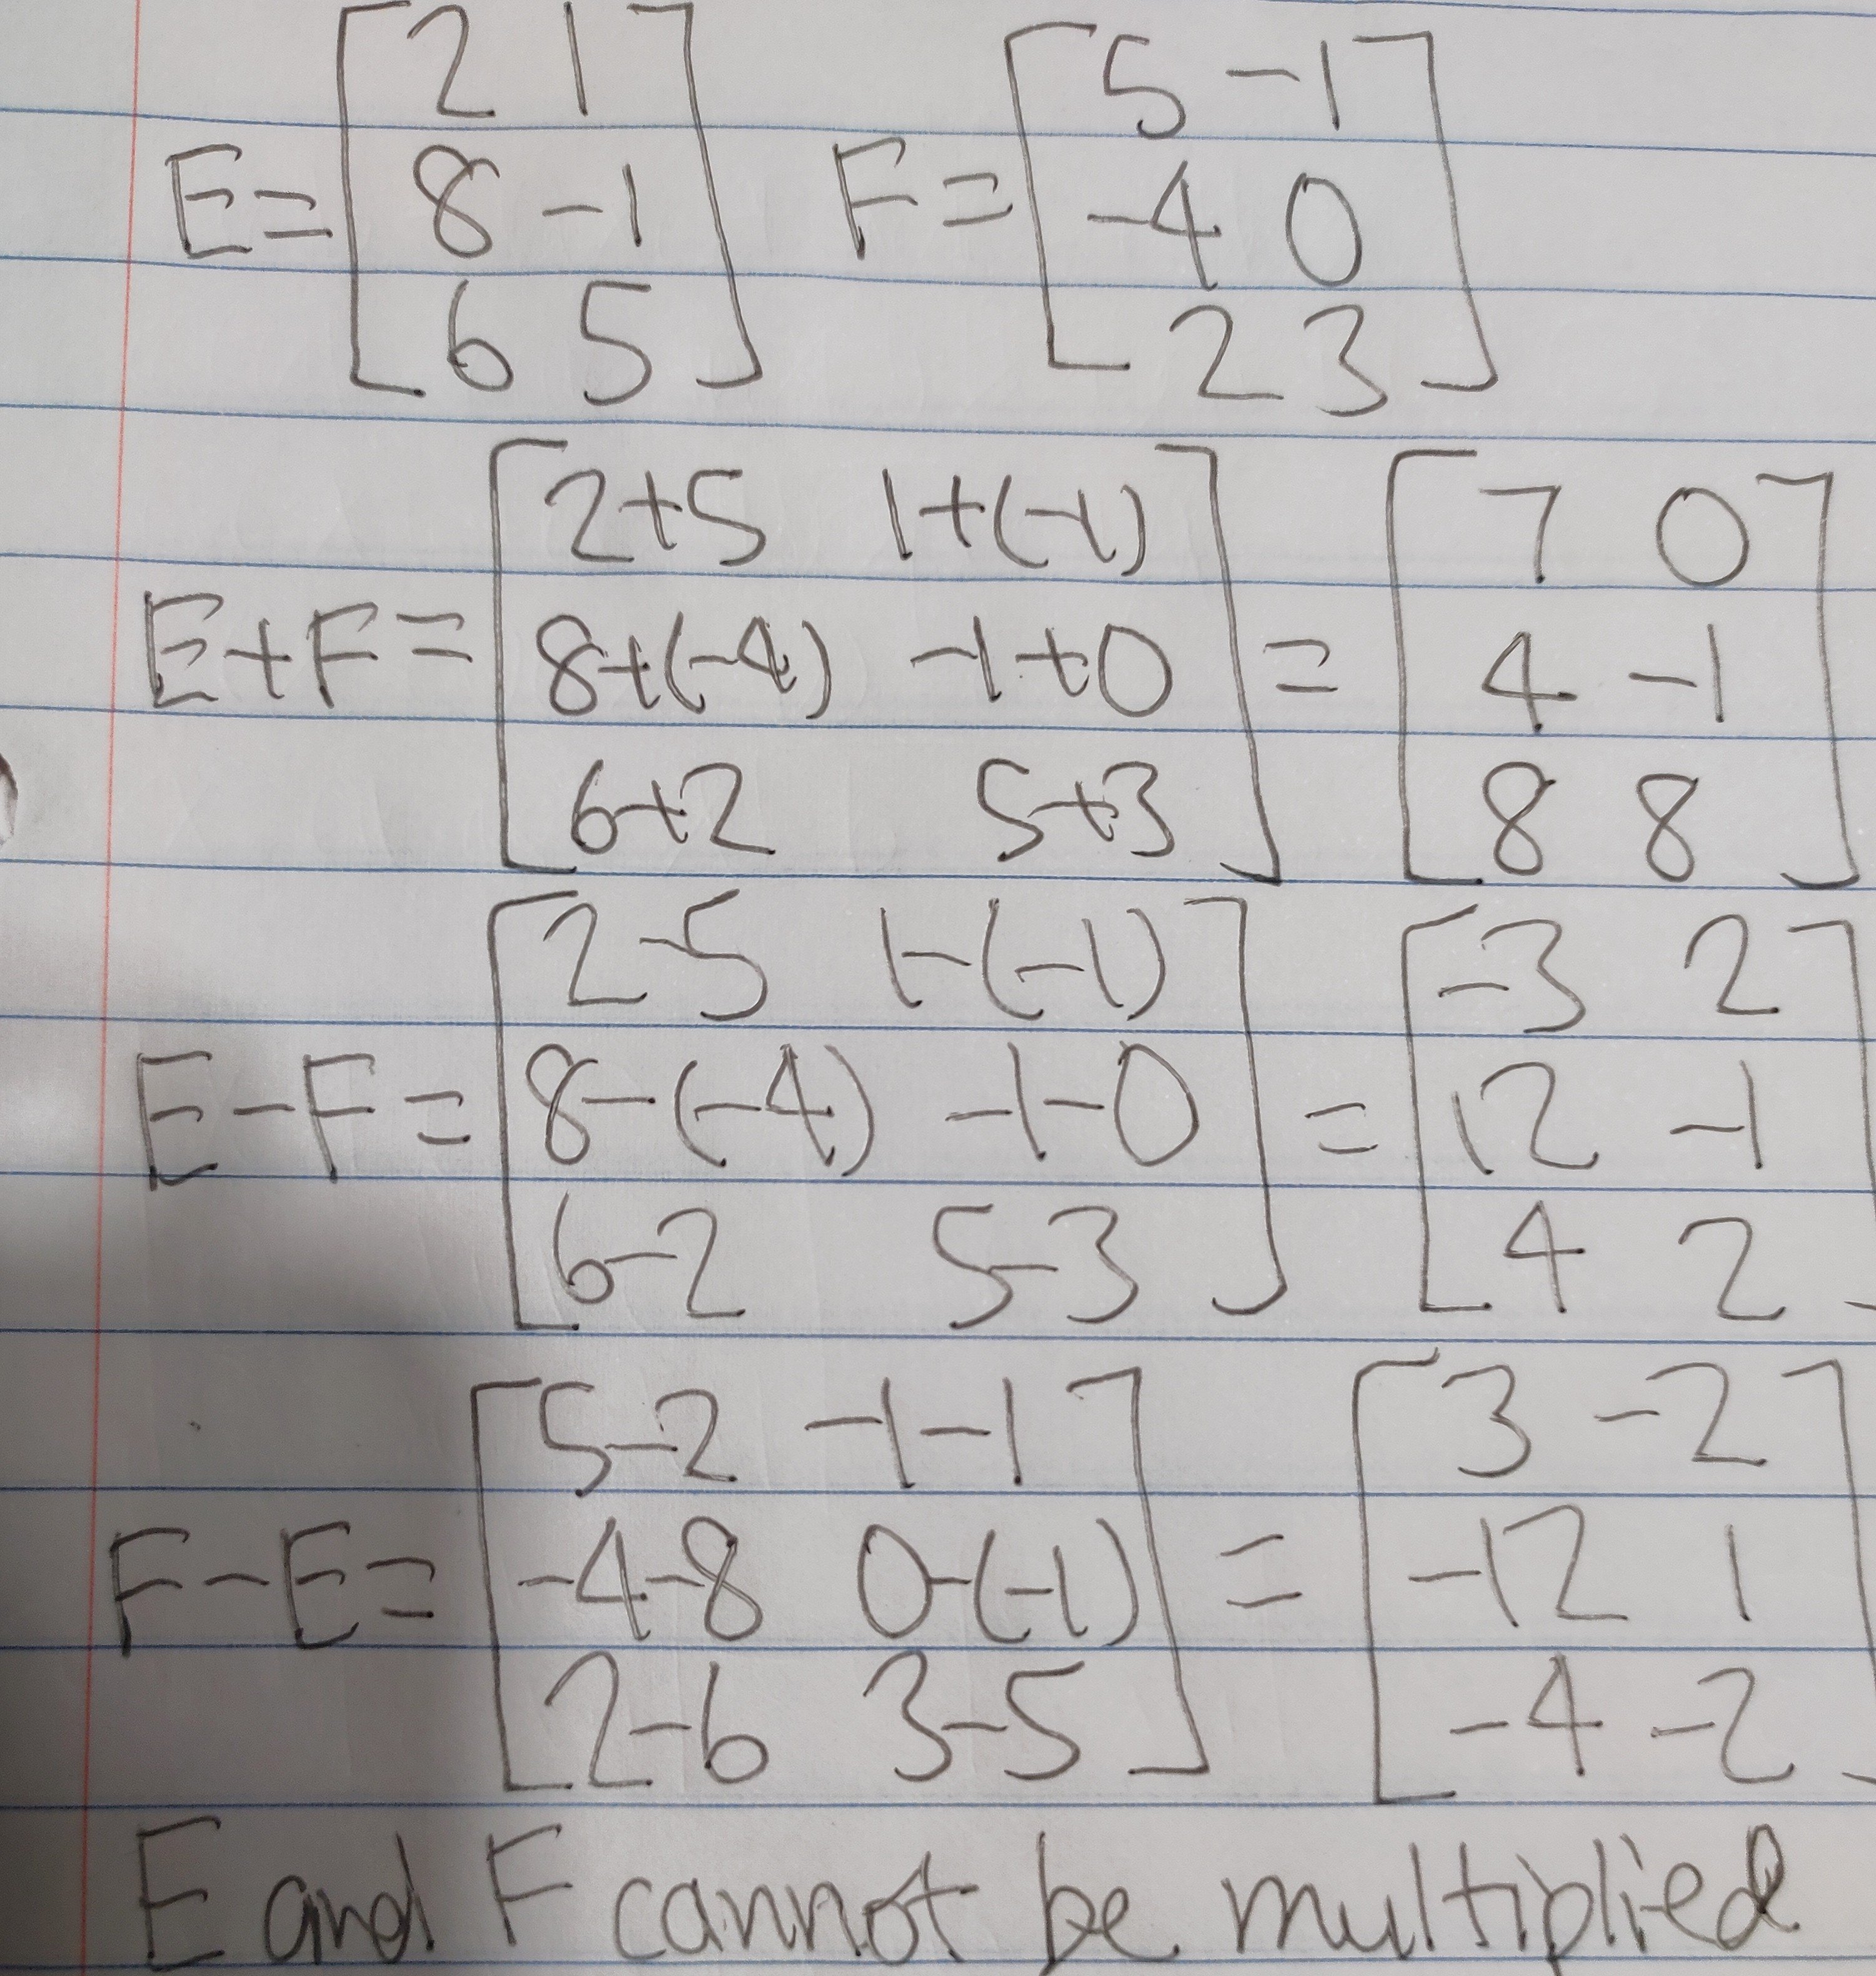 E = [2 1; 8 -1; 6 5] F = [5 -1; -4 0; 2 3]
E+F = [2+5 1+(-1); 8+(-4) -1+0; 6+2 5+3] = [7 0; 4 -1; 8 8]
E-F = [2-5 1-(-1); 8-(-4) -1-0; 6-2 5-3] = [-3 2; 12 -1; 4 2]
F-E = [5-2 -1-1; -4-8 0-(-1); 2-6 3-5] = [3 -2; -12 1; -4 -2]
E and F cannot be multiplied